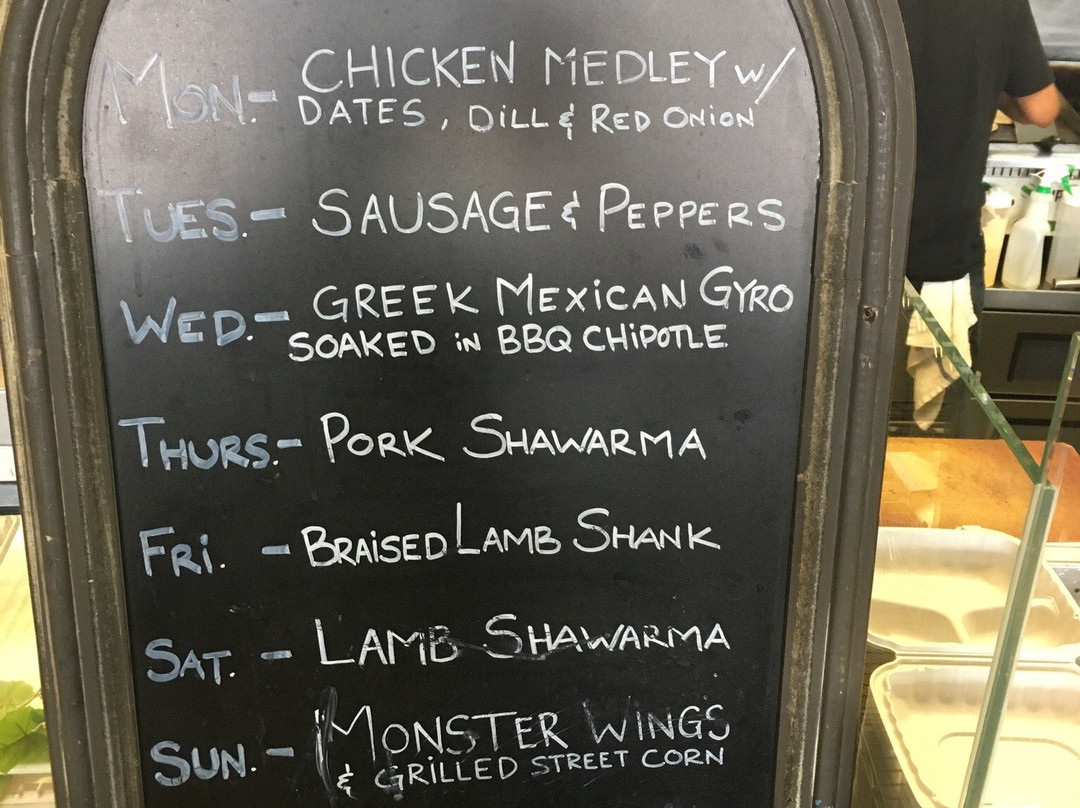 MON. - CHICKEN MEDLEY w/
DATES, DILL & RED ONION
TUES. - SAUSAGE & PEPPERS
WED. - GREEK MEXICAN GYRO
SOAKED IN BBQ CHIPOTLE
THURS. - PORK SHAWARMA
FRI. - BRAISED LAMB SHANK
SAT. - LAMB SHAWARMA
SUN. - MONSTER WINGS
& GRILLED STREET CORN